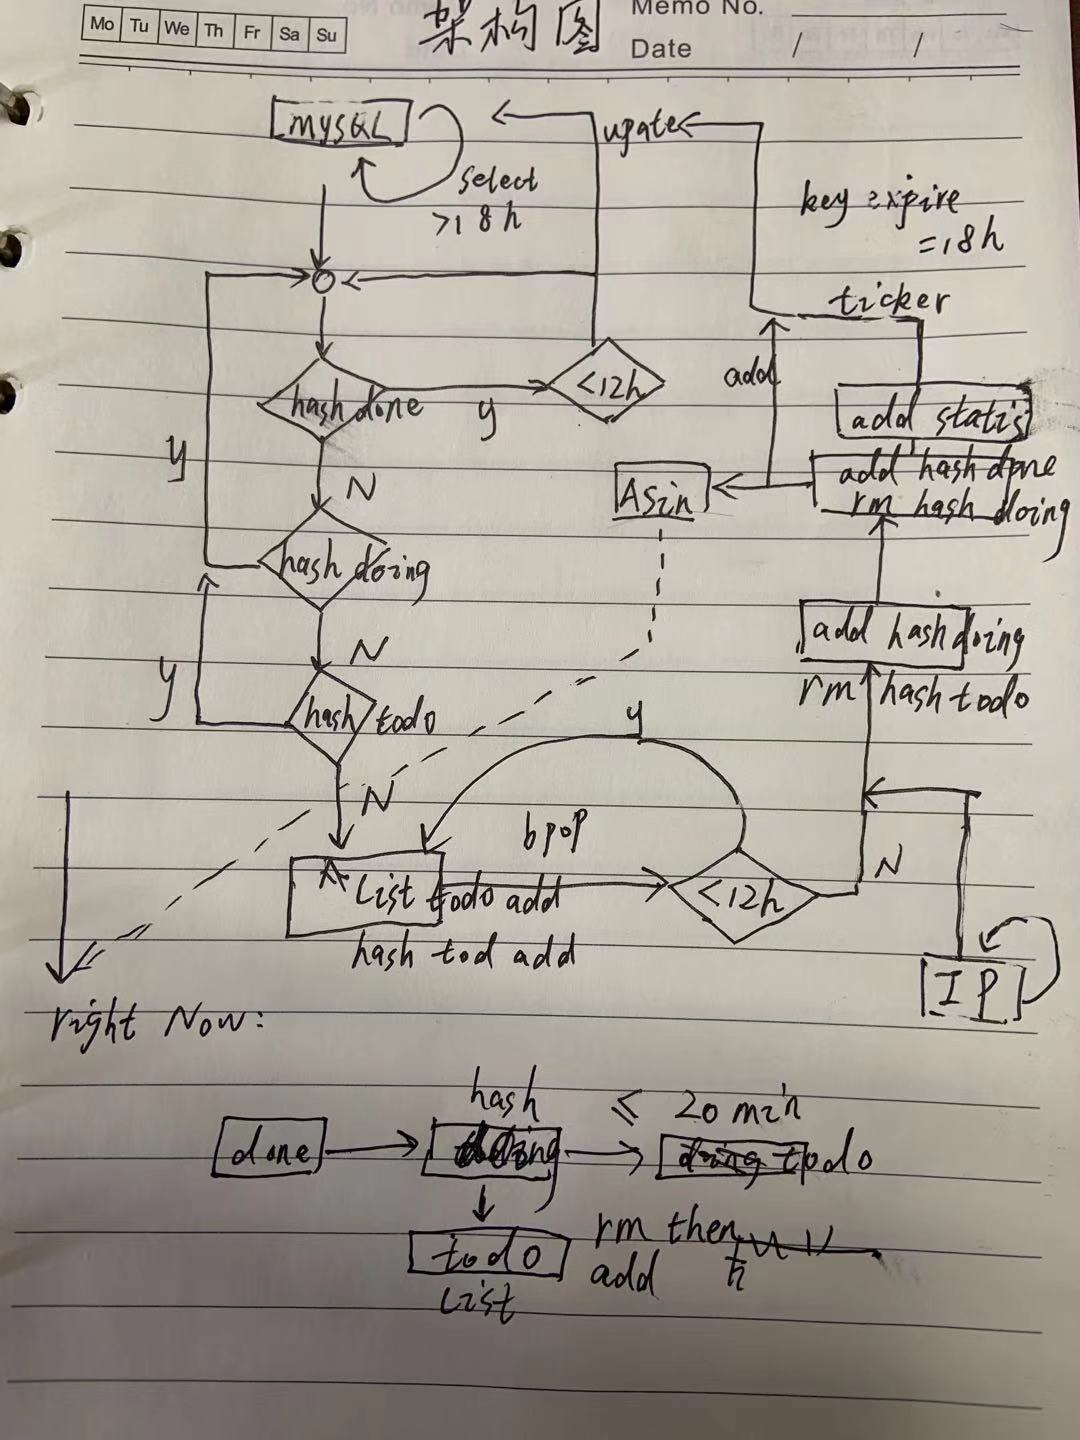 架构图
Memo No.
Mo Tu We Th Fr Sa Su
Date / /
mysQL
upate
select
>18h
key expire
=18h
ticker
hash done
y
<12h
add
add statis
y
N
Asin
add hash done
rm hash doing
hash doing
N
add hash doing
rm hash todo
y
hash todo
y
N
bpop
List todo add
<12h
N
hash tod add
IP
right Now:
hash
≤ 20 min
done
doing
todo
todo
List
rm then
add